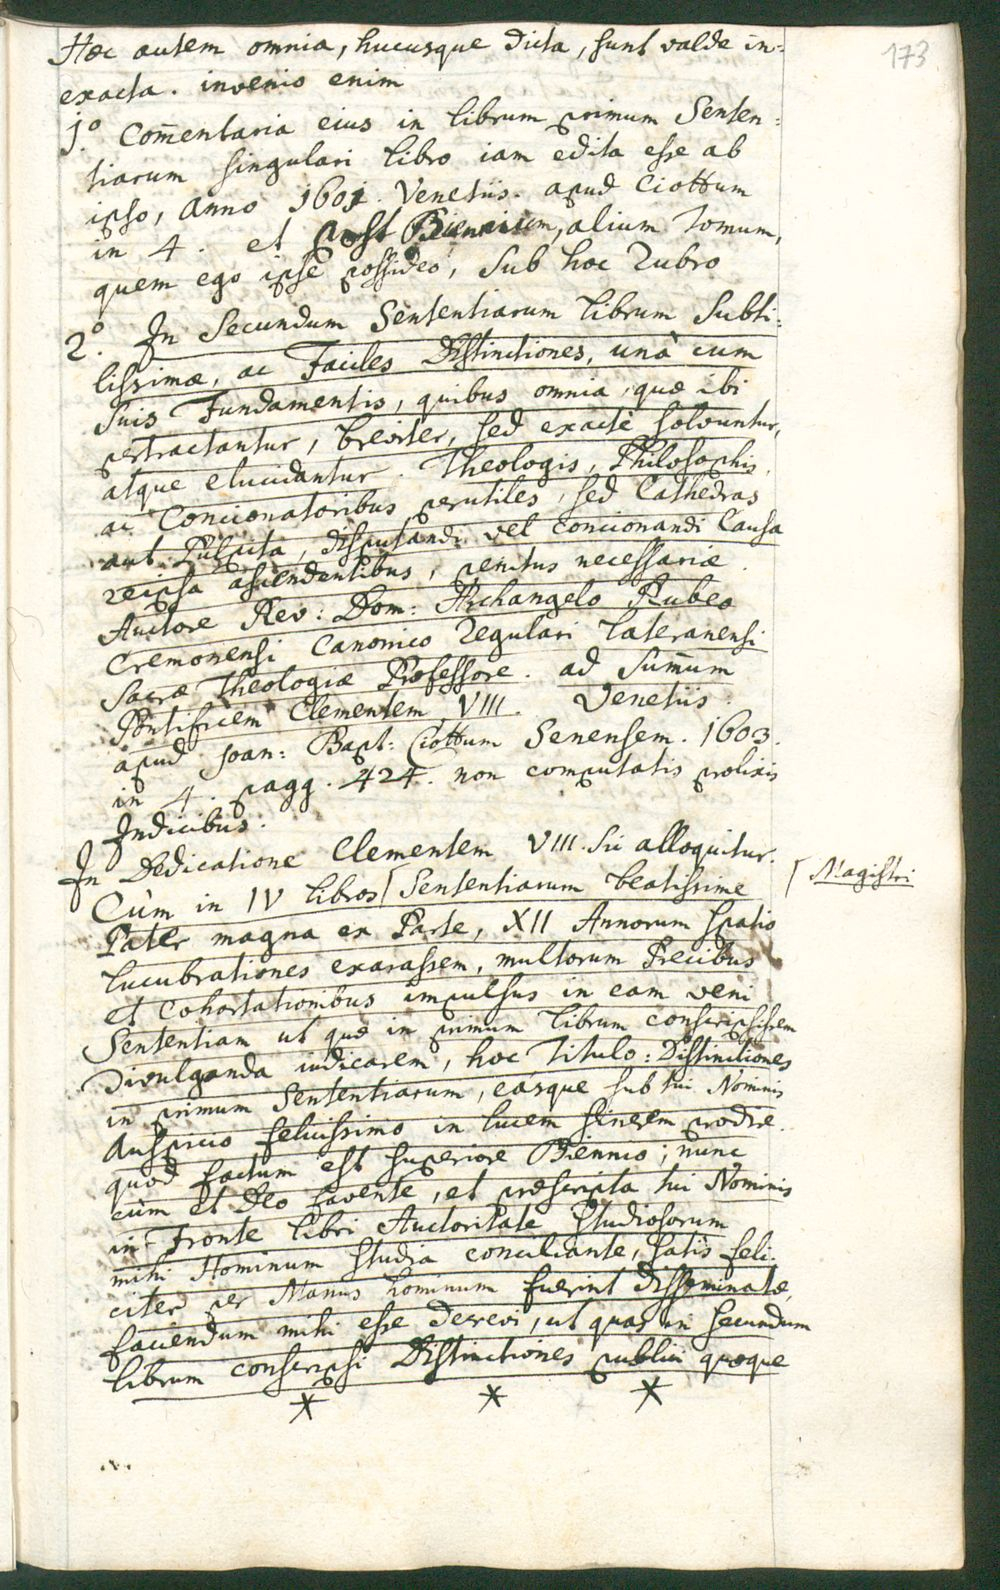 173
Hæc autem omnia, hucusque dicta, sunt valde in-
exacta. invenio enim
1.º Com̄entaria eius in librum primum Senten:
tiarum singulari libro iam edita esse ab
ipso, Anno 1601. Venetiis. apud Ciottum
in 4. et post Biennium, alium Tomum,
quem ego ipse possideo, sub hoc Rubro
2.º In Secundum Sententiarum librum subti:
lissimæ, ac Faciles Distinctiones, unà cum
suis Fundamentis, quibus omnia, quæ ibi
pertractantur, breviter, sed exactè solvuntur,
atque elucidantur. Theologis, Philosophis,
ac Concionatoribus perutiles, sed Cathedras
aut Pulpita, disputandi vel concionandi Causa
reipsa ascendentibus, penitus necessariæ.
Auctore Rev: Dom: Archangelo Rubeo
Cremonensi Canonico Regulari Lateranensi
Sacræ Theologiæ Professore. ad Sum̄um
Pontificem Clementem VIII. Venetiis.
apud Joan: Bapt: Ciottum Senensem. 1603.
in 4. pagg. 424. non computatis prolixis
Indicibus.
In Dedicatione Clementem VIII. sic alloquitur.
Cùm in IV libros ⌈ Sententiarum beatissime
⌈ Magistri
Pater magna ex Parte, XII Annorum spatio
lucubrationes exarassem, multorum Precibus
et Cohortationibus impulsus in eam veni
Sententiam ut quæ in primum librum conscripsissem
Divulganda iudicarem, hoc Titulo: Distinctiones
in primum Sententiarum, eásque sub tui Nominis
Auspicio felicissimo in lucem sinerem prodire.
quod factum est superiore Biennio; nunc
cùm et Deo favente, et præscripta tui Nominis
in Fronte libri Auctoritate studiosorum
mihi Hominum studia conciliante, satis feli-
citer per Manus hominum fuerint disseminatæ,
faciendum mihi esse decrevi, ut quas in secundum
librum conscripsi Distinctiones publici quoque
* * *